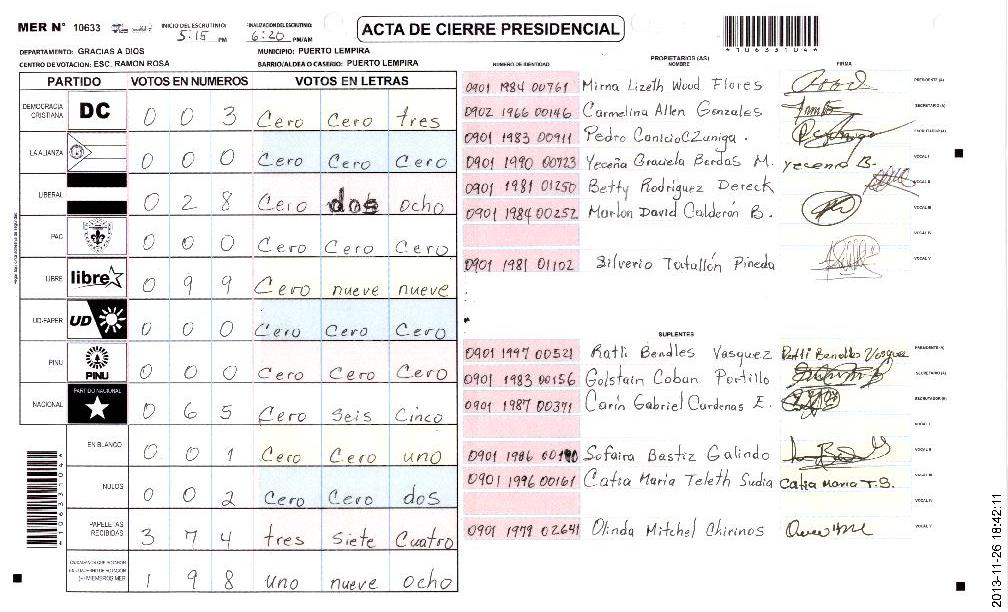 MER Nº 10633 INICIO DEL ESCRUTINIO: 5:15 PM FINALIZACION DEL ESCRUTINIO: 6:20 PM/AM
ACTA DE CIERRE PRESIDENCIAL
*1063310 4*
DEPARTAMENTO: GRACIAS A DIOS MUNICIPIO: PUERTO LEMPIRA
CENTRO DE VOTACION: ESC. RAMON ROSA BARRIO/ALDEA O CASERIO: PUERTO LEMPIRA
PARTIDO VOTOS EN NUMEROS VOTOS EN LETRAS
DEMOCRACIA CRISTIANA DC 0 0 3 Cero Cero tres
LA ALIANZA 0 0 0 Cero Cero Cero
LIBERAL 0 2 8 Cero dos ocho
PAC 0 0 0 Cero Cero Cero
LIBRE libre 0 9 9 Cero nueve nueve
UD-FAPER UD 0 0 0 Cero Cero Cero
PINU PINU 0 0 0 Cero Cero Cero
NACIONAL PARTIDO NACIONAL 0 6 5 Cero Seis Cinco
EN BLANCO 0 0 1 Cero Cero uno
NULOS 0 0 2 Cero Cero dos
PAPELETAS RECIBIDAS 3 7 4 tres Siete Cuatro
CIUDADANOS QUE VOTARON EN CUADERNO DE VOTACION (+) MIEMBROS MER 1 9 8 uno nueve ocho
PROPIETARIOS (AS)
NÚMERO DE IDENTIDAD NOMBRE FIRMA
0901 1984 00761 Mirna Lizeth Wood Flores PRESIDENTE (A)
0902 1966 00146 Carmelina Allen Gonzales SECRETARIO (A)
0901 1983 00911 Pedro Zuniga. ESCRUTADOR (A)
0901 1990 00723 Yeceña Graciela Bordas M. yecenia B. VOCAL I
0901 1981 01250 Betty Rodriguez Dereck VOCAL II
0901 1984 00252 Marlon David Calderón B. VOCAL III
VOCAL IV
0901 1981 01102 Silverio Tatallón Pineda VOCAL V
SUPLENTES
0901 1997 00521 Ratli Bendles Vasquez Ratli Bendles Vasquez PRESIDENTE (A)
0901 1983 00156 Golstain Coban Portillo SECRETARIO (A)
0901 1987 00371 Carin Gabriel Cardenas E. ESCRUTADOR (A)
VOCAL I
0901 1986 Sofaira Bastiz Galindo VOCAL II
0901 1996 00161 Catia Maria Teleth Sudia Catia Maria T.S. VOCAL III
VOCAL IV
0901 1979 02641 Olinda Mitchel Chirinos VOCAL V
2013-11-26 18:42:11